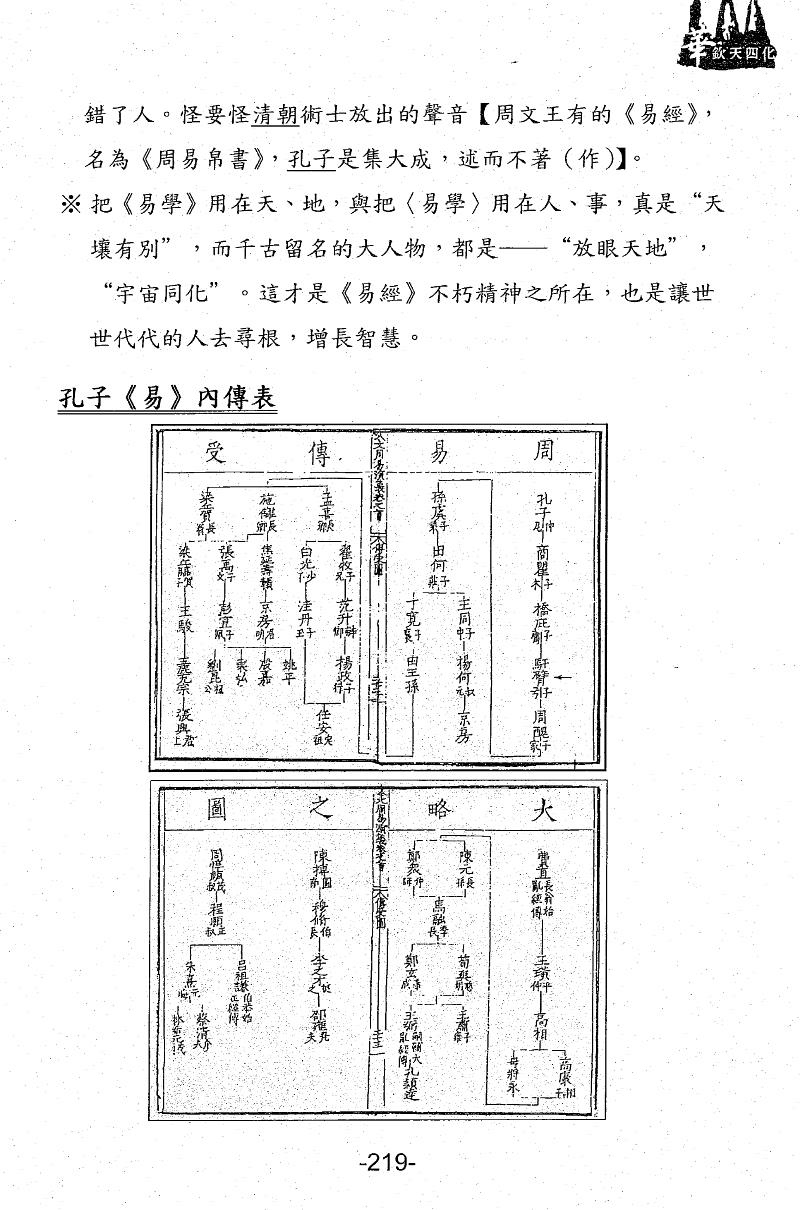 華
欽天四化
錯了人。怪要怪清朝術士放出的聲音【周文王有的《易經》，
名為《周易帛書》，孔子是集大成，述而不著（作）】。
※ 把《易學》用在天、地，與把〈易學〉用在人、事，真是“天
壤有別”，而千古留名的大人物，都是——“放眼天地”，
“宇宙同化”。這才是《易經》不朽精神之所在，也是讓世
世代代的人去尋根，增長智慧。
孔子《易》內傳表
周易傳受
孔子
商瞿
橋庇
馯臂
周醜
孫虞
田何
王同
楊何
京房
丁寬
田王孫
孟喜
施讎
梁賀
翟牧
范升
楊政
白光
洼丹
任安
焦延壽
京房
殷嘉
姚平
張禹
彭宣
王駿
張興
大略之圖
費直
王璜
高相
毋將永
陳元
鄭眾
馬融
鄭玄
王肅
孔穎達
陳摶
穆脩
李之才
邵雍
周惇頤
程頤
呂祖謙
朱熹
蔡清
-219-